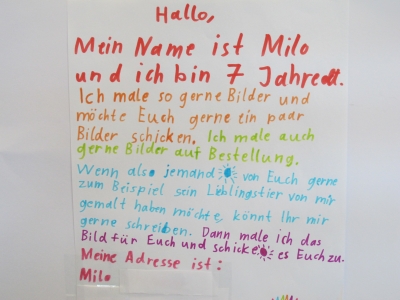 Hallo,
Mein Name ist Milo
und ich bin 7 Jahre alt.
Ich male so gerne Bilder und
möchte Euch gerne ein paar
Bilder schicken. Ich male auch
gerne Bilder auf Bestellung.
Wenn also jemand von Euch gerne
zum Beispiel sein Lieblingstier von mir
gemalt haben möchte, könnt Ihr mir
gerne schreiben. Dann male ich das
Bild für Euch und schicke es Euch zu.
Meine Adresse ist:
Milo